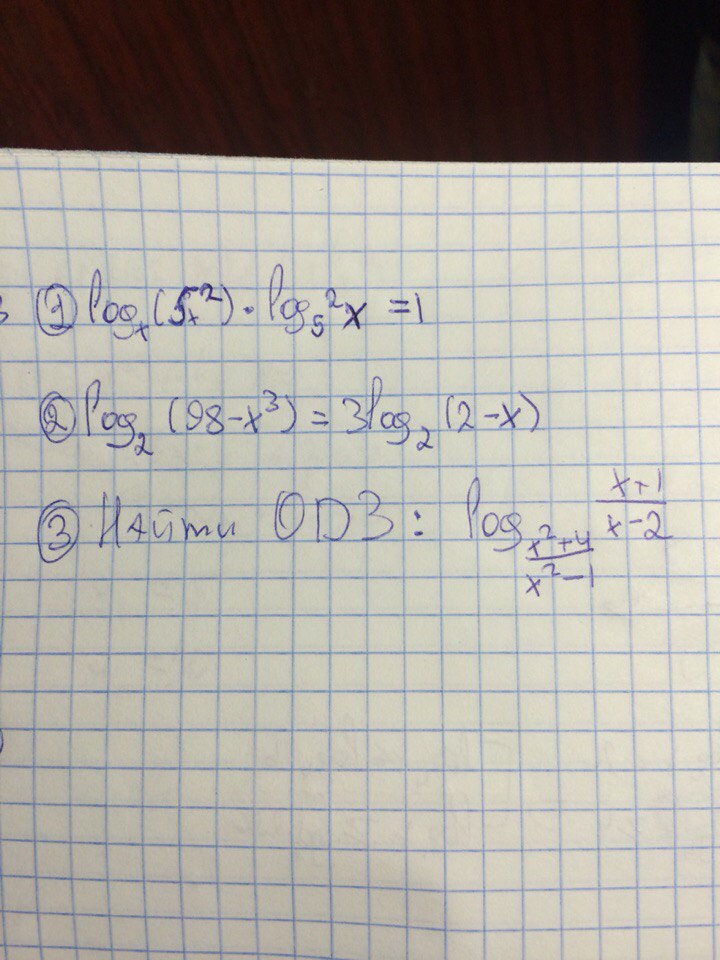 ① log_x(5x²) · log₅²x = 1
② log₂(98-x³) = 3log₂(2-x)
③ Найти ОDЗ: log_{\frac{x²+4}{x²-1}} \frac{x+1}{x-2}